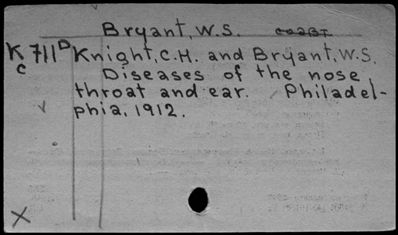 Bryant, W.S.
K 711 D Knight, C.H. and Bryant, W.S.
C Diseases of the nose,
throat and ear. Philadel-
phia, 1912.
X